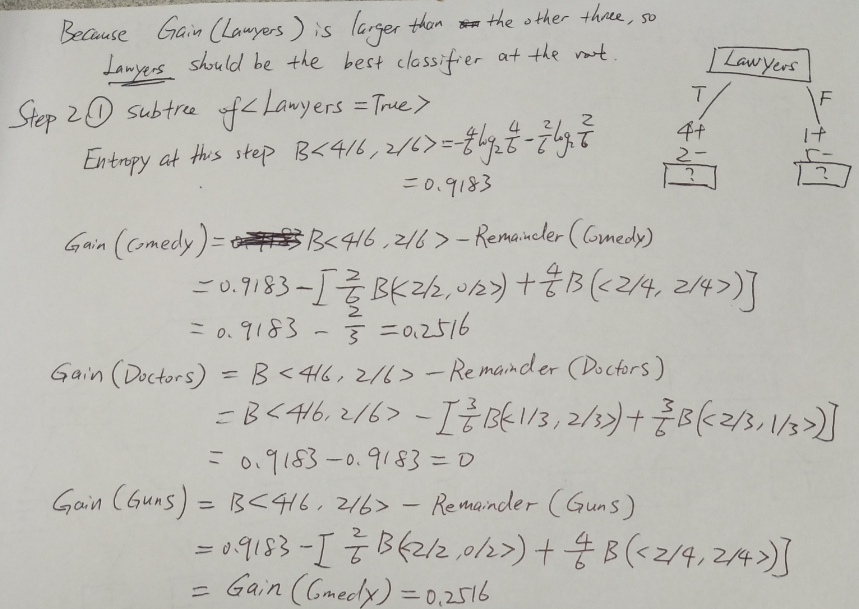 Because Gain(Lawyers) is larger than the other three, so
Lawyers should be the best classifier at the root.
Lawyers
T F
4+ 1+
2- 5-
? ?
Step 2 ① subtree of <Lawyers = True>
Entropy at this step B<4/6, 2/6> = -4/6 log₂ 4/6 - 2/6 log₂ 2/6
= 0.9183
Gain(Comedy) = B<4/6, 2/6> - Remainder(Comedy)
= 0.9183 - [2/6 B(<2/2, 0/2>) + 4/6 B(<2/4, 2/4>)]
= 0.9183 - 2/3 = 0.2516
Gain(Doctors) = B<4/6, 2/6> - Remainder(Doctors)
= B<4/6, 2/6> - [3/6 B(<1/3, 2/3>) + 3/6 B(<2/3, 1/3>)]
= 0.9183 - 0.9183 = 0
Gain(Guns) = B<4/6, 2/6> - Remainder(Guns)
= 0.9183 - [2/6 B(<2/2, 0/2>) + 4/6 B(<2/4, 2/4>)]
= Gain(Comedy) = 0.2516